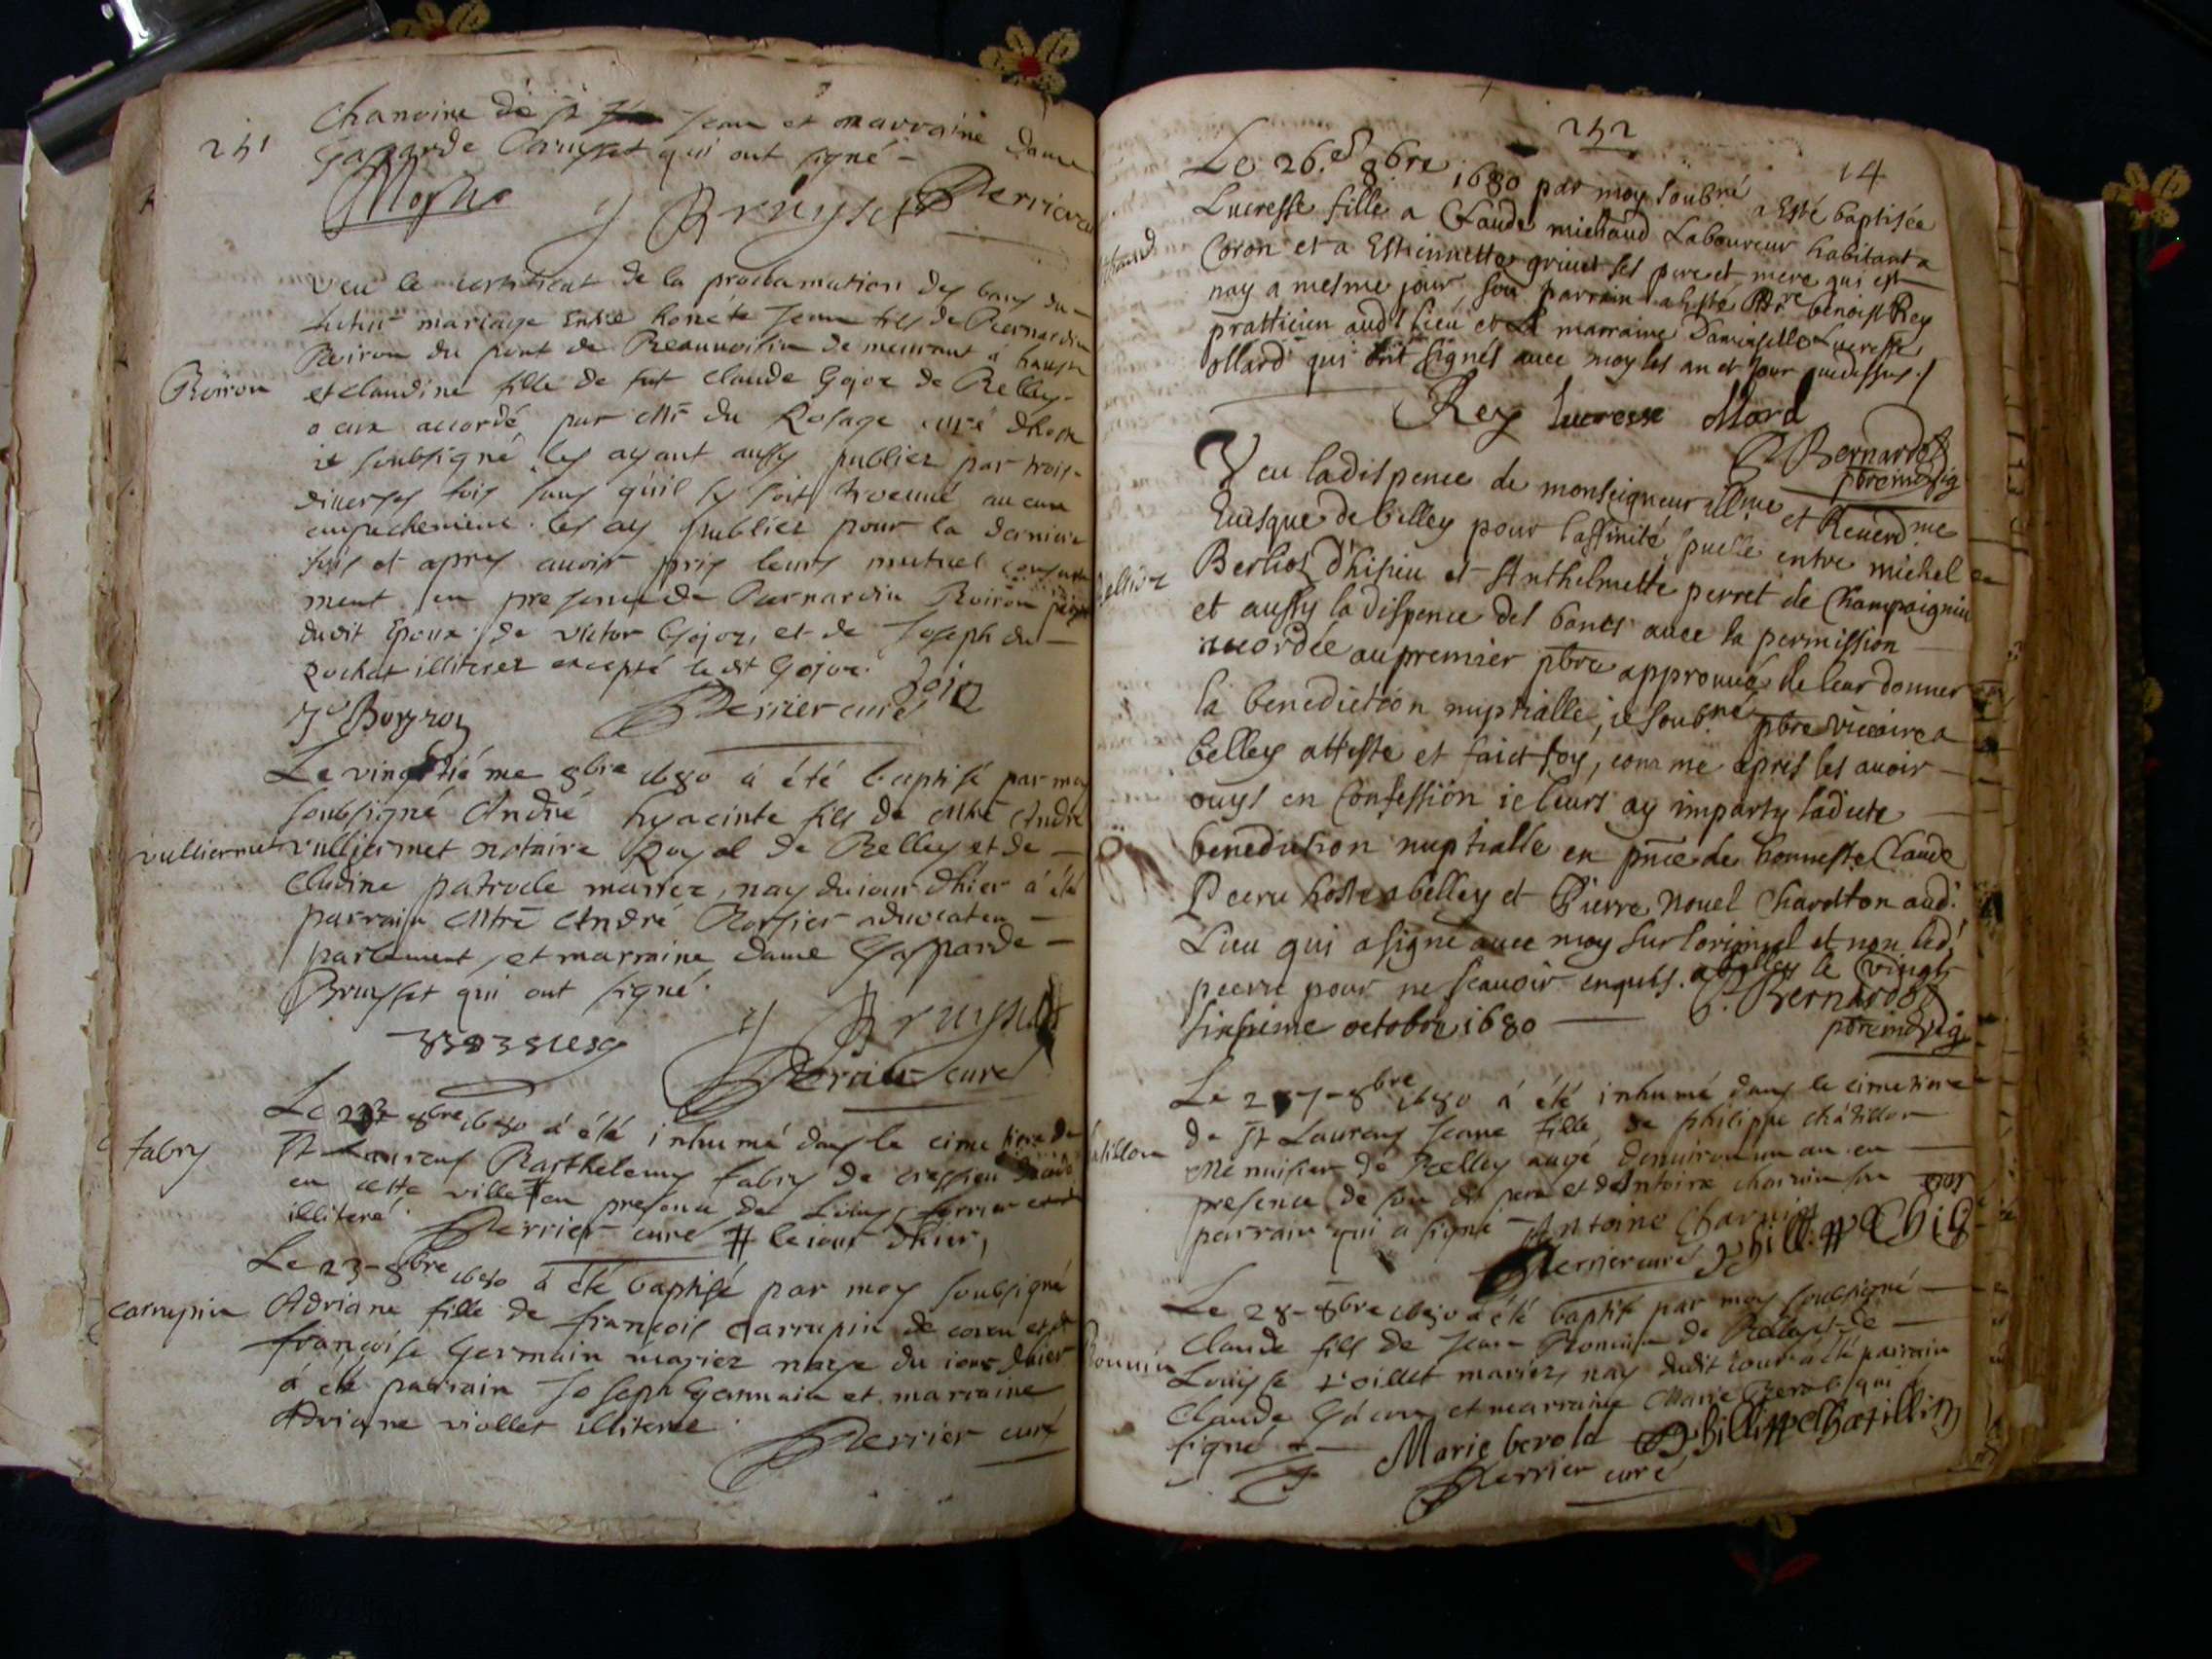 251
Chanoine de St Jean et marraine dame
Gasparde Bruyset qui ont signé -
Bruyset Perrier
veu le certificat de la proclamation des bans du
futur mariage entre honéte Jean fils de Bernardin
Roiron du pont de Beauvoisin demeurant à
Roiron
et claudine fille de fut claude Gojoz de Belley
a eux accordé par Mr du Rosage curé
ie soubsigné les ayant aussy publiez par trois
diverses fois sans qu'il sy soit trouvé aucun
empechement les ay publiez pour la derniere
fois et apres avoir pris leurs mutuel consente
ment en presence de Bernardin Roiron
dudit epoux de victor Gojoz, et de Joseph du
Rochat illiterez excepté ledit Gojoz
Perrier curé
Le vingtiéme 8bre 1680 à été baptisé par moy
soubsigné André hyacinte fils de Mtre André
vulliermet
vulliermet notaire Royal de Belley et de
Cludine patrocle mariez, nay du iour dhier à été
parrain Mtre André advocat en
parlement, et marraine dame Gasparde
Bruyset qui ont signé.
Bruyset
Perrier curé
Le 23 8bre 1680 à été inhumé dans le cimetiere de
fabry
St Laurens Barthelemy fabry de cressieu
en cette ville # en presence de Louys ferrier
illiteré.
Perrier curé # le iour dhier,
Le 23 - 8bre 1680 à été baptisé par moy soubsigné
carrupin
Adriane fille de françois Carrupin de coron et de
françoise Germain mariez naye du iour dhier
à été parrain Joseph Germain et marraine
Adriane viollet illiteree.
Perrier curé
252
14
Le 26.e 8bre 1680 par moy soubné a Esté baptisée
Lucresse fille a Claude michaud Laboureur habitant a
Coron et a Estiennette grinet ses pere et mere qui est
nay a mesme jour, son parrain a Esté Mre benoist Rey
pratticien audt lieu et marraine Damoiselle Lucresse
ollard qui ont signés avec moy les an et jour que dessus./
Rey lucresse ollard
Bernardet
pbre indig
Veu la dispence de monseigneur illme et Reverdme
Evesque de belley pour l'affinité spuelle entre michel
Berlioz d'hisieu et Anthelmette perret de Champaignieu
et aussy la dispence des bancs avec la permission
accordée au premier pbre approuvé de leur donner
la benediction nuptialle, ie soubné pbre vicaire a
belley atteste et faict foy, comme apres les avoir
ouys en Confession ie leurs ay imparty ladicte
benediction nuptialle en pnce de honneste Claude
Peeru hoste a belley et Pierre Nouel Chardton aud.
Lieu qui a signé avec moy sur l'original et non led.
peeru pour ne scavoir enquis. a belley le vingt
sixiesme octobre 1680
Bernardet
pbre indig
Le 27 - 8bre 1680 à été inhumé dans le cimetiere
de St Laurens Jeane fille de philippe châtillon
Menuisier de Belley aagé denviron un an en
presence de son dit pere et dAntoine charvin son
parrain qui a signé Antoine Charvin
Perrier curé
Le 28 - 8bre 1680 à été baptisé par moy soubsigné
Claude fils de Jean Romain de Belley et de
Louyse mariez, nay dudit iour à été parrain
Claude Gacon et marraine Marie Berod qui
signé
Marie berold Philippe Chatillion
Perrier curé